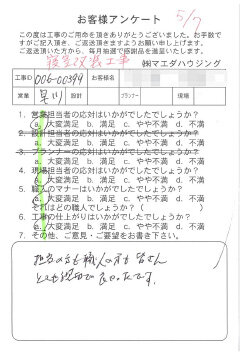 お客様アンケート 5/7
この度は工事のご用命を頂きありがとうございました。お手数で
すがご記入頂き、ご返送頂きますようお願い申し上げます。
ご返送頂いた方から、毎月抽選で感謝品を進呈いたします。
㈱マエダハウジング
工事ID 006-00399 お客様名
営業 早川 プランナー 現場
1. 営業担当者の応対はいかがでしたでしょうか?
a. 大変満足 b. 満足 c. やや不満 d. 不満
2. 設計担当者の応対はいかがでしたでしょうか?
a. 大変満足 b. 満足 c. やや不満 d. 不満
3. プランナーの応対はいかがでしたでしょうか?
a. 大変満足 b. 満足 c. やや不満 d. 不満
4. 現場担当者の応対はいかがでしたでしょうか?
a. 大変満足 b. 満足 c. やや不満 d. 不満
5. 職人のマナーはいかがでしたでしょうか?
a. 大変満足 b. 満足 c. やや不満 d. 不満
それはどの職人でしょうか?( )
6. 工事の仕上がりはいかがでしたでしょうか?
a. 大変満足 b. 満足 c. やや不満 d. 不満
7. その他、ご意見・ご要望をお書き下さい。
担当の方も職人の方も皆さん
とても親切で良かったです。